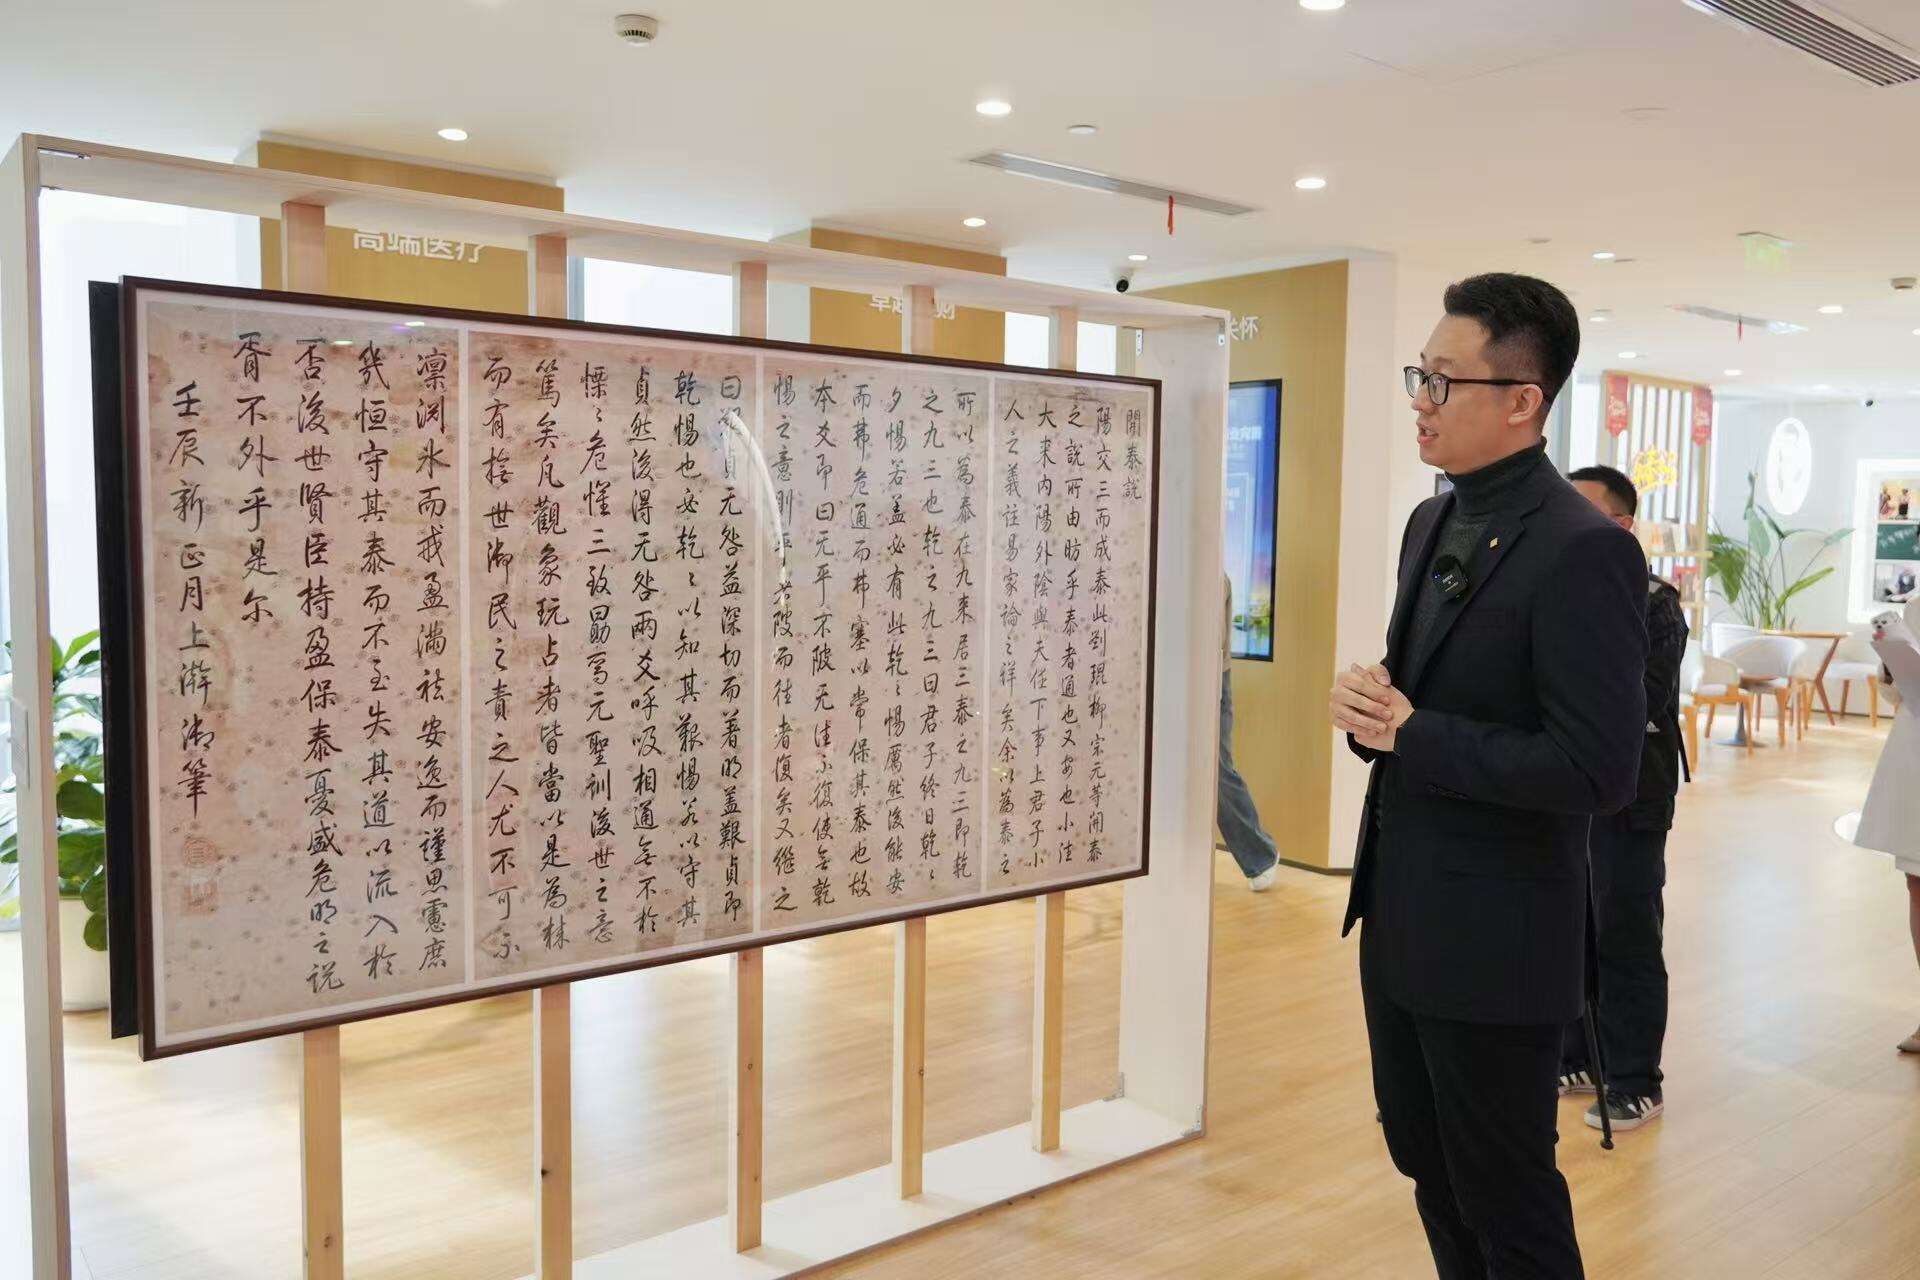 開泰說
陽交三而成泰此劉琨柳宗元等開泰
之說所由昉乎泰者通也又安也小往
大来内陽外陰與夫任下事上君子小
人之義註易家論之詳矣余以為泰之
所以為泰在九来居三泰之九三即乾
之九三也乾之九三曰君子終日乾〻
夕惕若盖必有此乾〻惕厲然後能安
而弗危通而弗塞以常保其泰也故
本爻即曰无平不陂无往不復使無乾
惕之意則平者陂而往者復矣又繼之
曰艱貞无咎益深切而著明盖艱貞即
乾惕也必乾〻以知其艱惕若以守其
貞然後得无咎兩爻呼吸相通無不於
慄〻危懼三致勗焉元聖訓後世之意
篤矣凡觀象玩占者皆當以是為
而有撫世御民之責之人尤不可不
凛渊氷而戒盈滿祛安逸而謹思慮庶
幾恒守其泰而不至失其道以流入於
否後世賢臣持盈保泰憂盛危明之説
胥不外乎是尔
壬辰新正月上澣御筆
高端医疗
财
怀